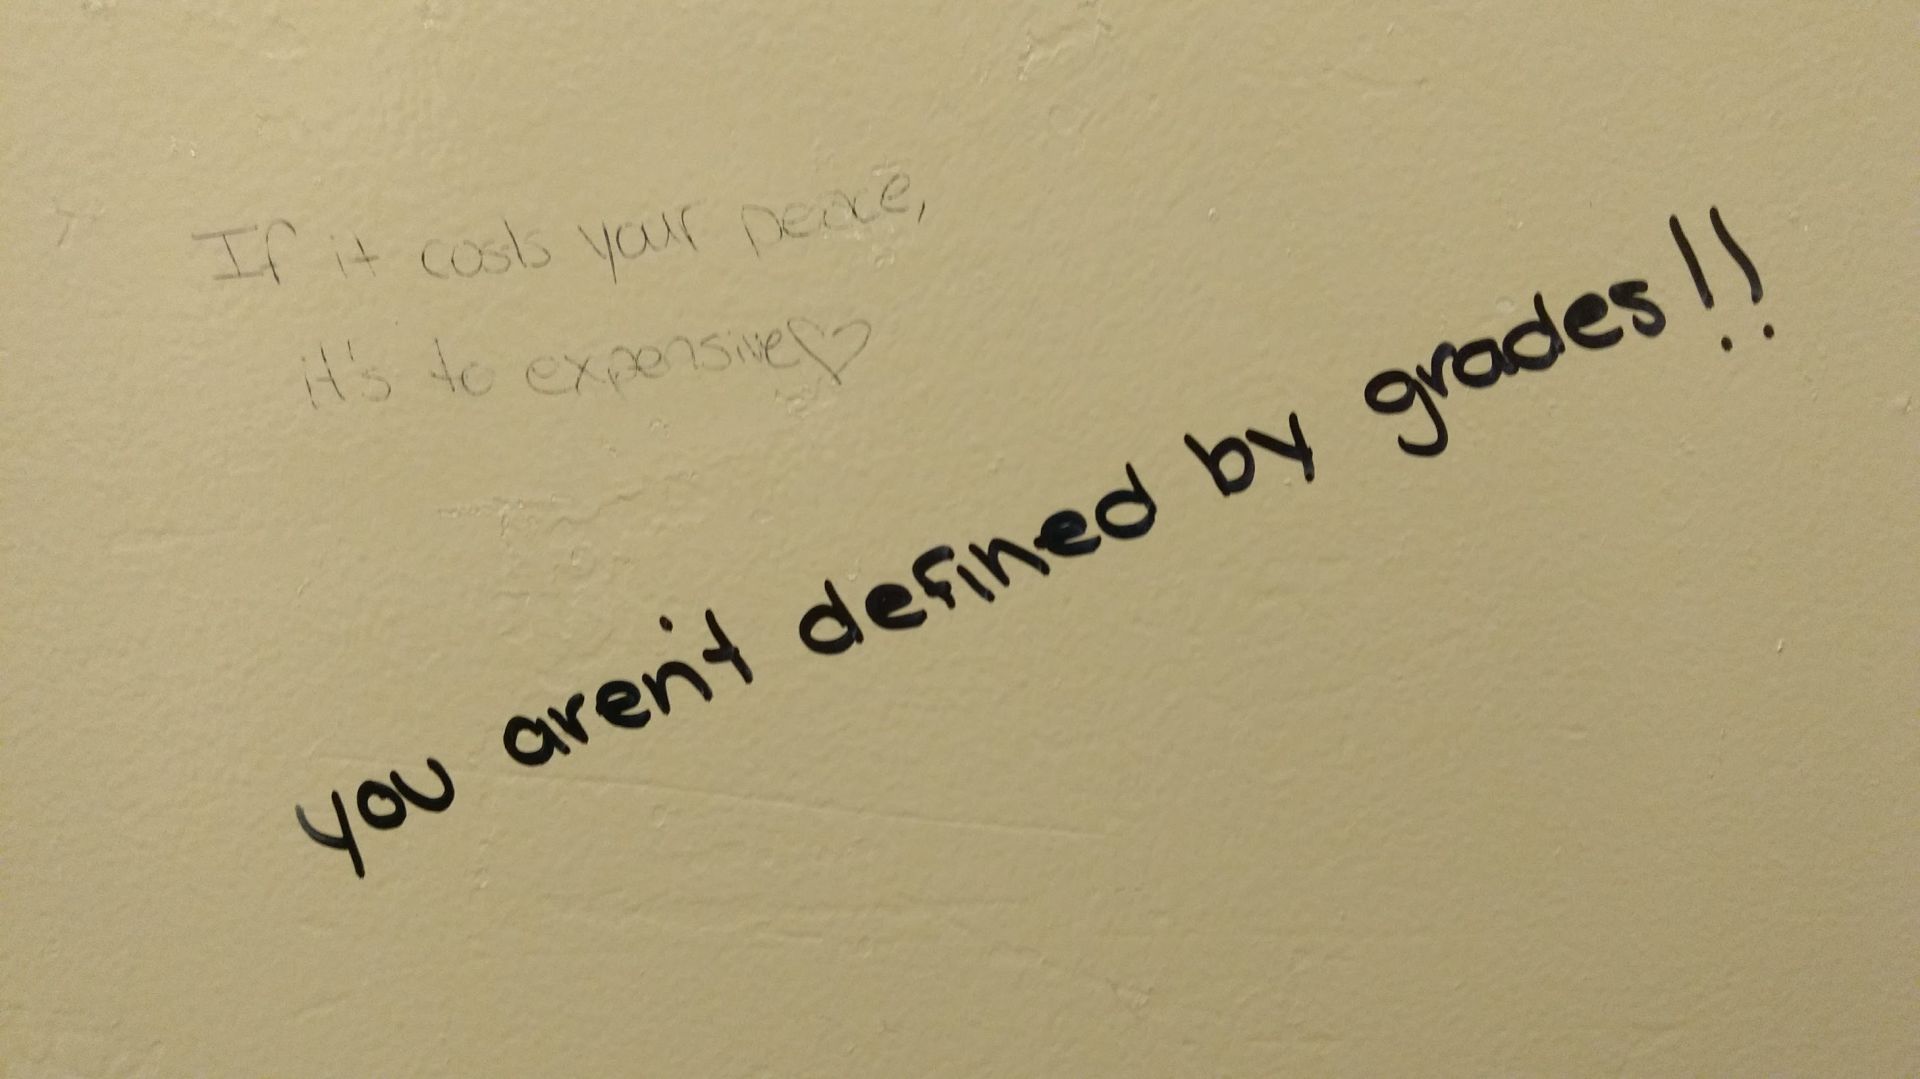 If it costs your peace,
it's to expensive♡
you aren't defined by grades!!